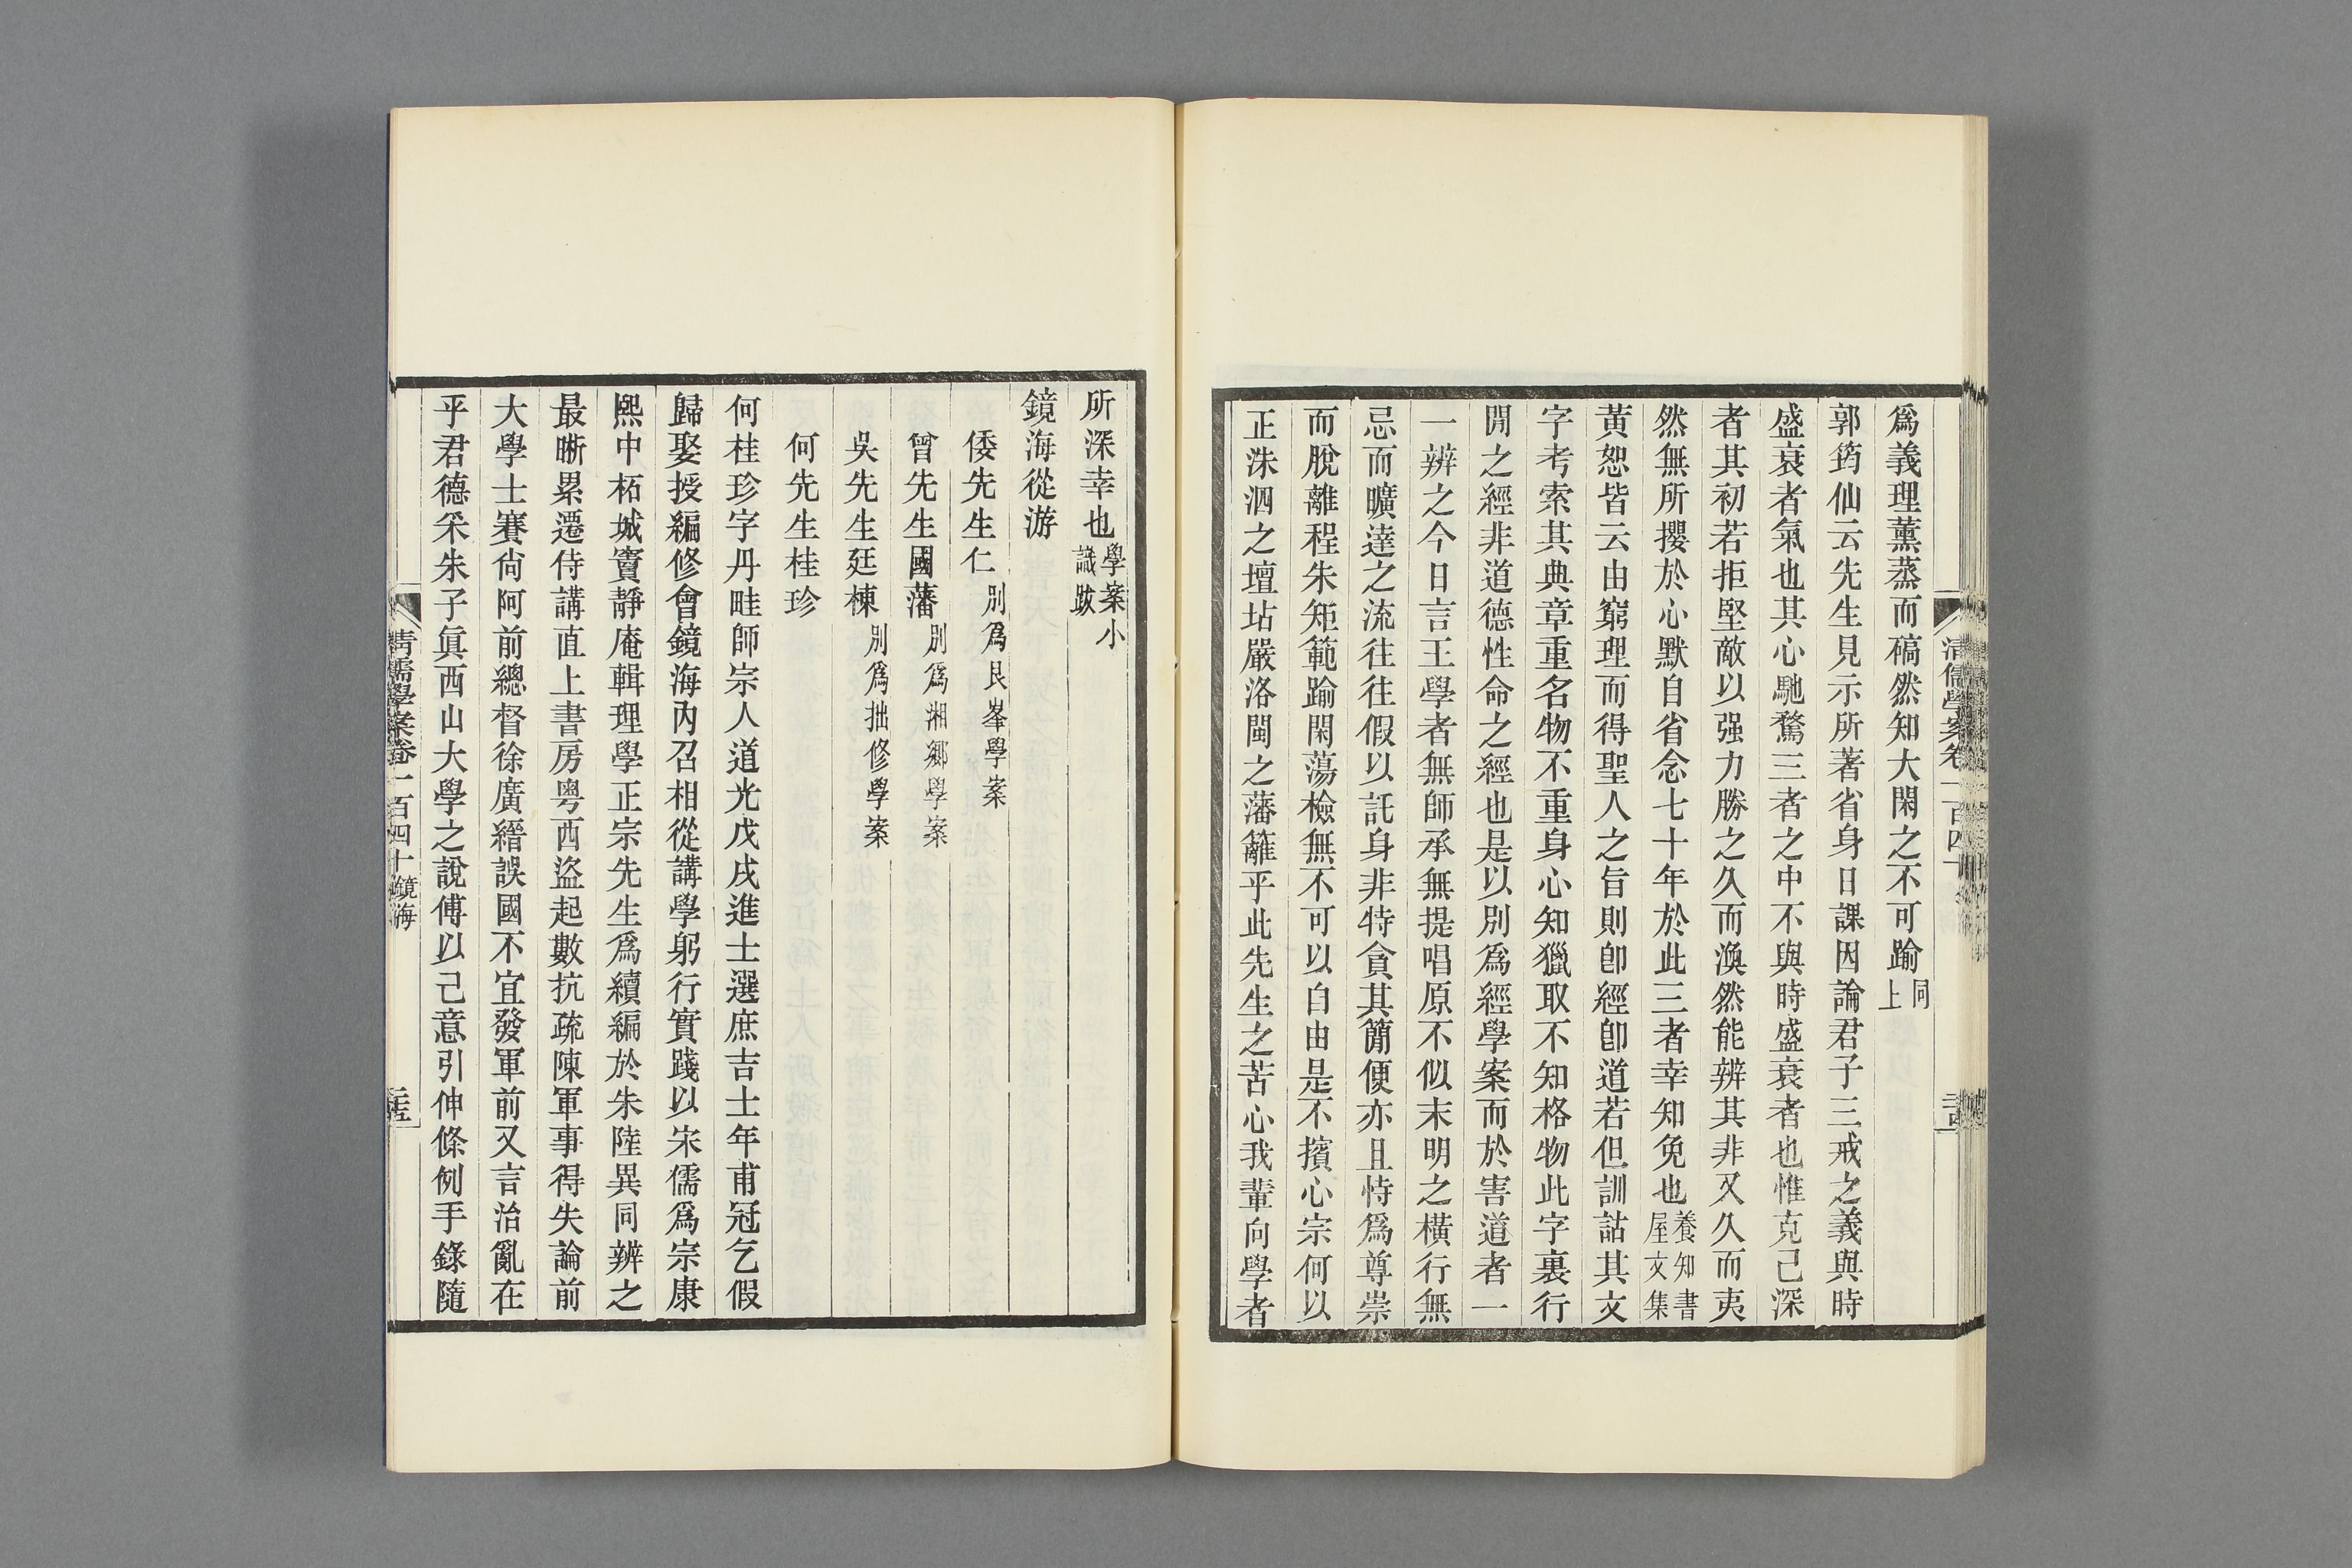 爲義理薰蒸而礄然知大閑之不可踰同上
郭筠仙云先生見示所著省身日課因論君子三戒之義與時
盛衰者氣也其心馳騖三者之中不與時盛衰者也惟克己深
者其初若拒堅敵以强力勝之久而渙然能辨其非又久而夷
然無所攖於心默自省念七十年於此三者幸知免也養知書屋文集
黃恕皆云由窮理而得聖人之旨則卽經卽道若但訓詁其文
字考索其典章重名物不重身心知獵取不知格物此字裏行
閒之經非道德性命之經也是以別爲經學案而於害道者一
一辨之今日言王學者無師承無提唱原不似末明之橫行無
忌而曠達之流往往假以託身非特貪其簡便亦且恃爲尊崇
而脫離程朱矩範踰閑蕩檢無不可以自由是不擯心宗何以
正洙泗之壇坫嚴洛閩之藩籬乎此先生之苦心我輩向學者
清儒學案卷一百四十
所深幸也學案小識跋
鏡海從游
倭先生仁別爲艮峯學案
曾先生國藩別爲湘鄉學案
吳先生廷棟別爲拙修學案
何先生桂珍
何桂珍字丹畦師宗人道光戊戌進士選庶吉士年甫冠乞假
歸娶授編修會鏡海內召相從講學躬行實踐以宋儒爲宗康
熙中柘城竇靜庵輯理學正宗先生爲續編於朱陸異同辨之
最晣累遷侍講直上書房粵西盜起數抗疏陳軍事得失論前
大學士賽尙阿前總督徐廣縉誤國不宜發軍前又言治亂在
乎君德采朱子眞西山大學之說傅以己意引伸條例手錄隨
清儒學案卷一百四十鏡海